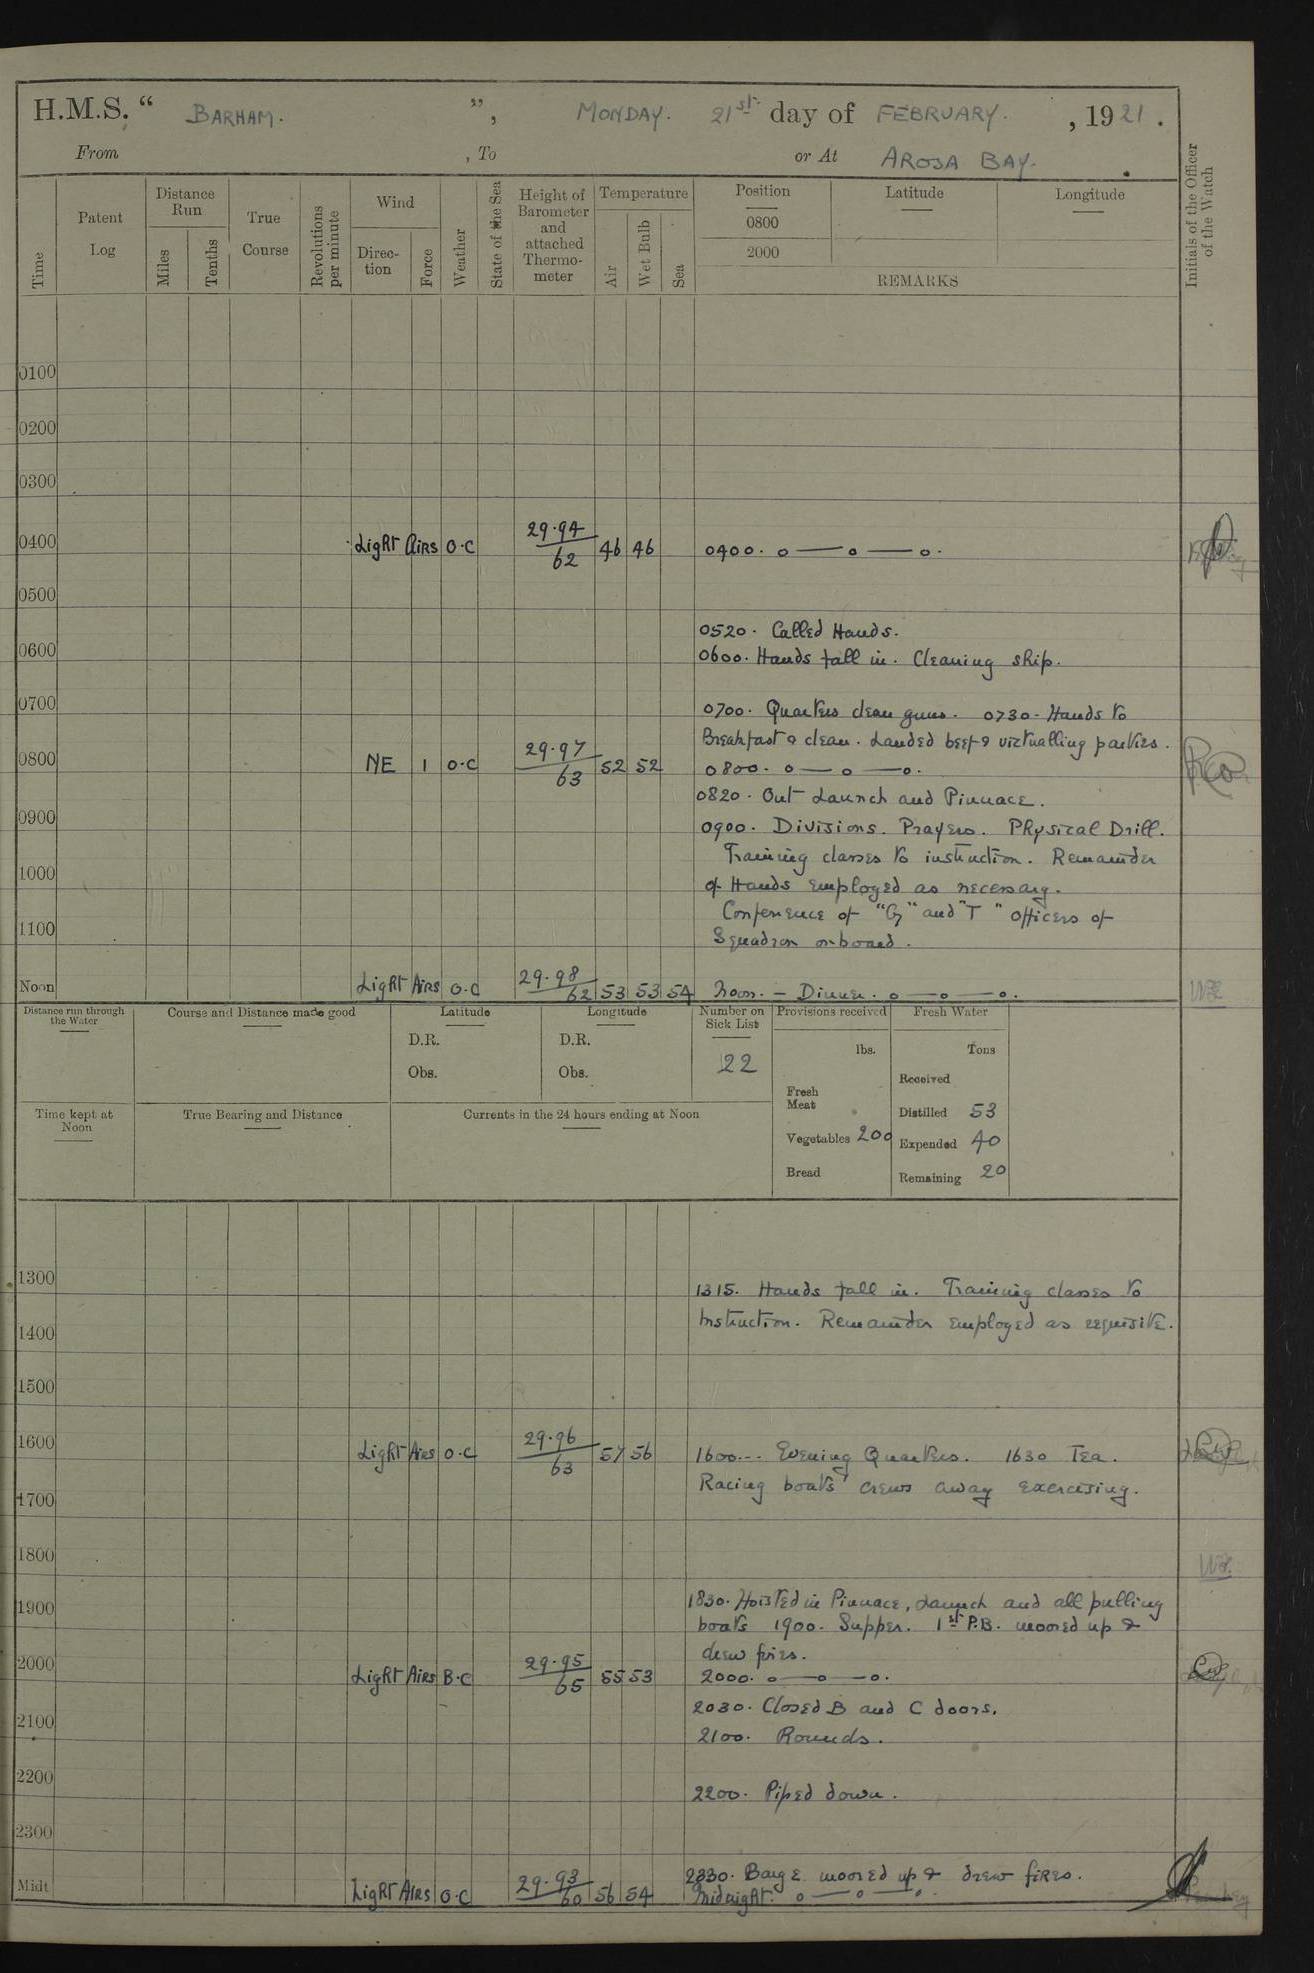 H.M.S. “ BARHAM. ”, MONDAY. 21st day of FEBRUARY. , 1921.
From , To or At AROSA BAY.
Time
Patent Log
Distance Run
Miles
Tenths
True Course
Revolutions per minute
Wind
Direction
Force
Weather
State of the Sea
Height of Barometer and attached Thermometer
Temperature
Air
Wet Bulb
Sea
Position Latitude Longitude
0800
2000
REMARKS
Initials of the Officer of the Watch
0100
0200
0300
0400 Light Airs O.C 29.94/62 46 46 0400. o — o — o.
0500
0520. Called Hands.
0600 0600. Hands fall in. Cleaning ship.
0700 0700. Quarters clean guns. 0730. Hands to
Breakfast & clean. Landed beef & victualling parties.
0800 NE 1 O.C 29.97/63 52 52 0800. o — o — o.
0820. Out Launch and Pinnace.
0900 0900. Divisions. Prayers. Physical Drill.
Training classes to instruction. Remainder
1000 of Hands employed as necessary.
Conference of "G" and "T" officers of
1100 Squadron onboard.
Noon Light Airs O.C 29.98/62 53 53 54 Noon. — Dinner. o — o — o.
Distance run through the Water
Course and Distance made good
Latitude
D.R.
Obs.
Longitude
D.R.
Obs.
Number on Sick List
22
Provisions received
lbs.
Fresh Meat
Vegetables 200
Bread
Fresh Water
Tons
Received
Distilled 53
Expended 40
Remaining 20
Time kept at Noon
True Bearing and Distance
Currents in the 24 hours ending at Noon
1300 1315. Hands fall in. Training classes to
Instruction. Remainder employed as requisite.
1400
1500
1600 Light Airs O.C 29.96/63 57 56 1600... Evening Quarters. 1630 Tea.
Racing boats' crews away exercising.
1700
1800
1830. Hoisted in Pinnace, Launch and all pulling
1900 boats 1900. Supper. 1st P.B. moored up &
drew fires.
2000 Light Airs B.C 29.95/65 55 53 2000. o — o — o.
2030. Closed B and C doors.
2100 2100. Rounds.
2200 2200. Piped down.
2300
2330. Barge moored up & drew fires.
Midt Light Airs O.C 29.93/60 56 54 Midnight. o — o — o.